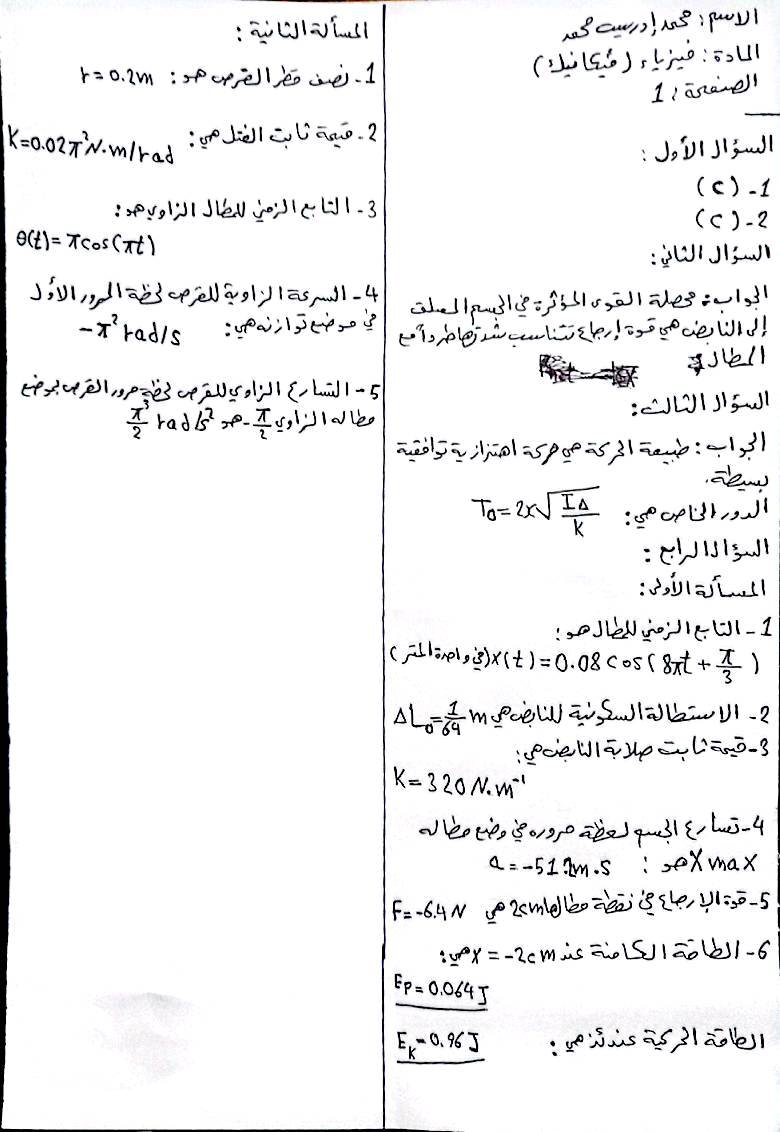 الاسم: محمد إدريس محمد
المادة: فيزياء (ميكانيك)
الصفحة: 1
السؤال الأول:
1- (c)
2- (c)
السؤال الثاني:
الجواب: محصلة القوى المؤثرة في الجسم المعلق
إلى النابض هي قوة إرجاع تتناسب شدتها طرداً مع
المطال
السؤال الثالث:
الجواب: طبيعة الحركة هي حركة اهتزازية توافقية
بسيطة.
الدور الخاص هي: T₀=2π√(I∆/k)
السؤال الرابع:
المسألة الأولى:
1- التابع الزمني للمطال هو:
x(t)=0.08cos(8πt+π/3) (في واحدة المتر)
2- الاستطالة السكونية للنابض هي ∆L₀=1/64 m
3- قيمة ثابت صلابة النابض هي:
K=320N.m⁻¹
4- تسارع الجسم لحظة مروره في وضع مطاله
Xmax هو: a=-51.2m.s
5- قوة الإرجاع في نقطة مطالها 2cm هي F=-6.4N
6- الطاقة الكامنة عند x=-2cm هي:
Ep=0.064J
الطاقة الحركية عندئذ هي: E_K=0.96J
المسألة الثانية:
1- نصف قطر القرص هو: r=0.2m
2- قيمة ثابت الفتل هي: K=0.02π²N.m/rad
3- التابع الزمني للمطال الزاوي هو:
θ(t)=πcos(πt)
4- السرعة الزاوية للقرص لحظة المرور الأول
في موضع توازنه هي: -π² rad/s
5- التسارع الزاوي للقرص لحظة مرور القرص بموضع
مطاله الزاوي -π/2 هو π³/2 rad/s²